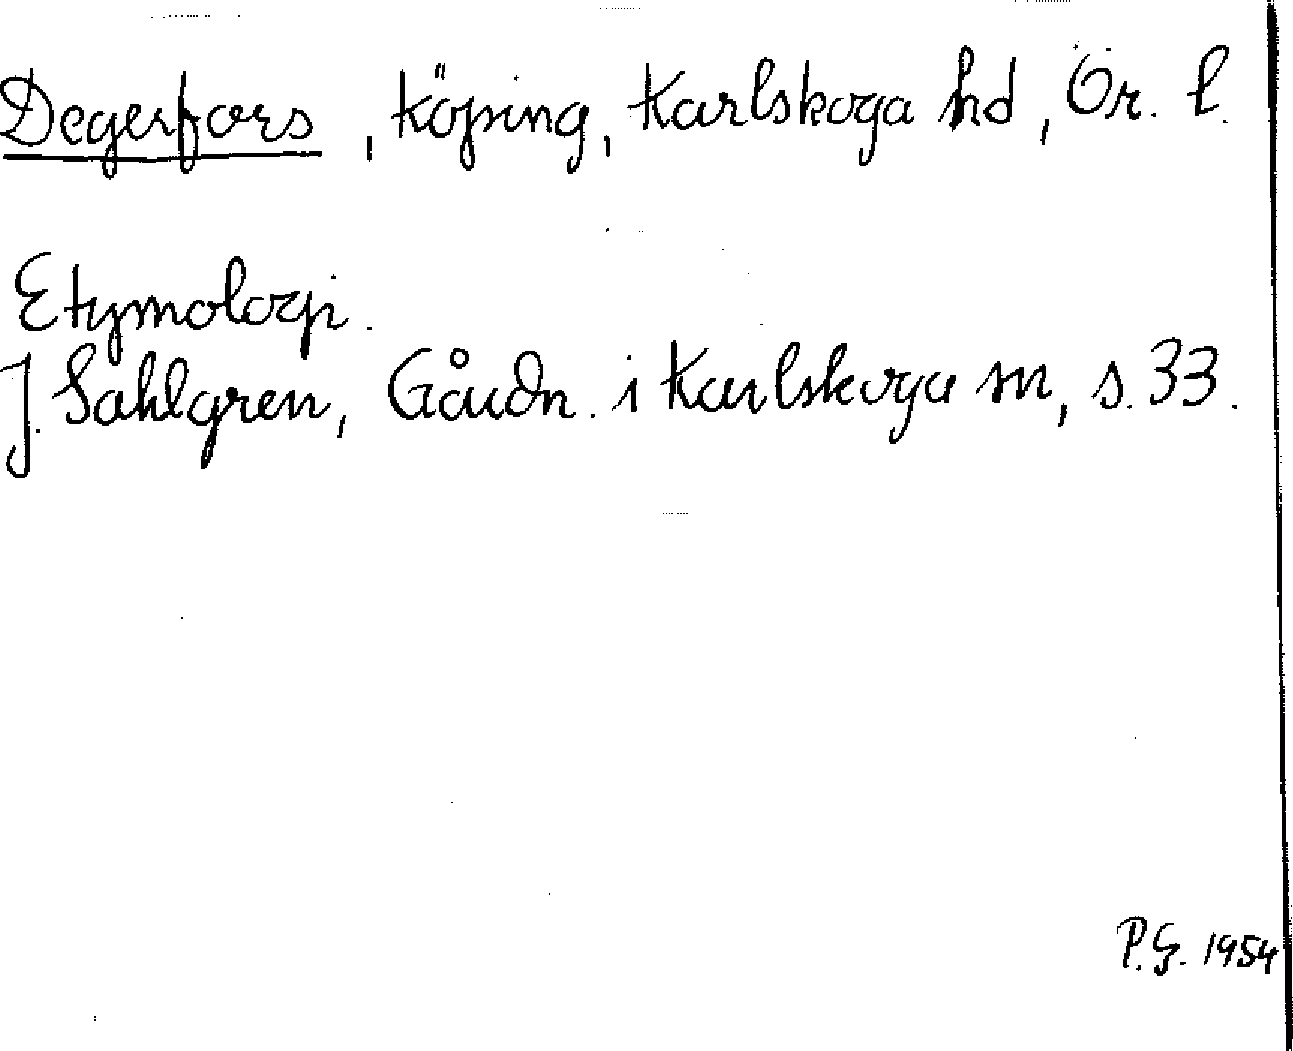 Degerfors, köping, Karlskoga hd, Ör. l.
Etymologi.
J. Sahlgren, Gåudn. i Karlskoga sn, s. 33.
P.G. 1954